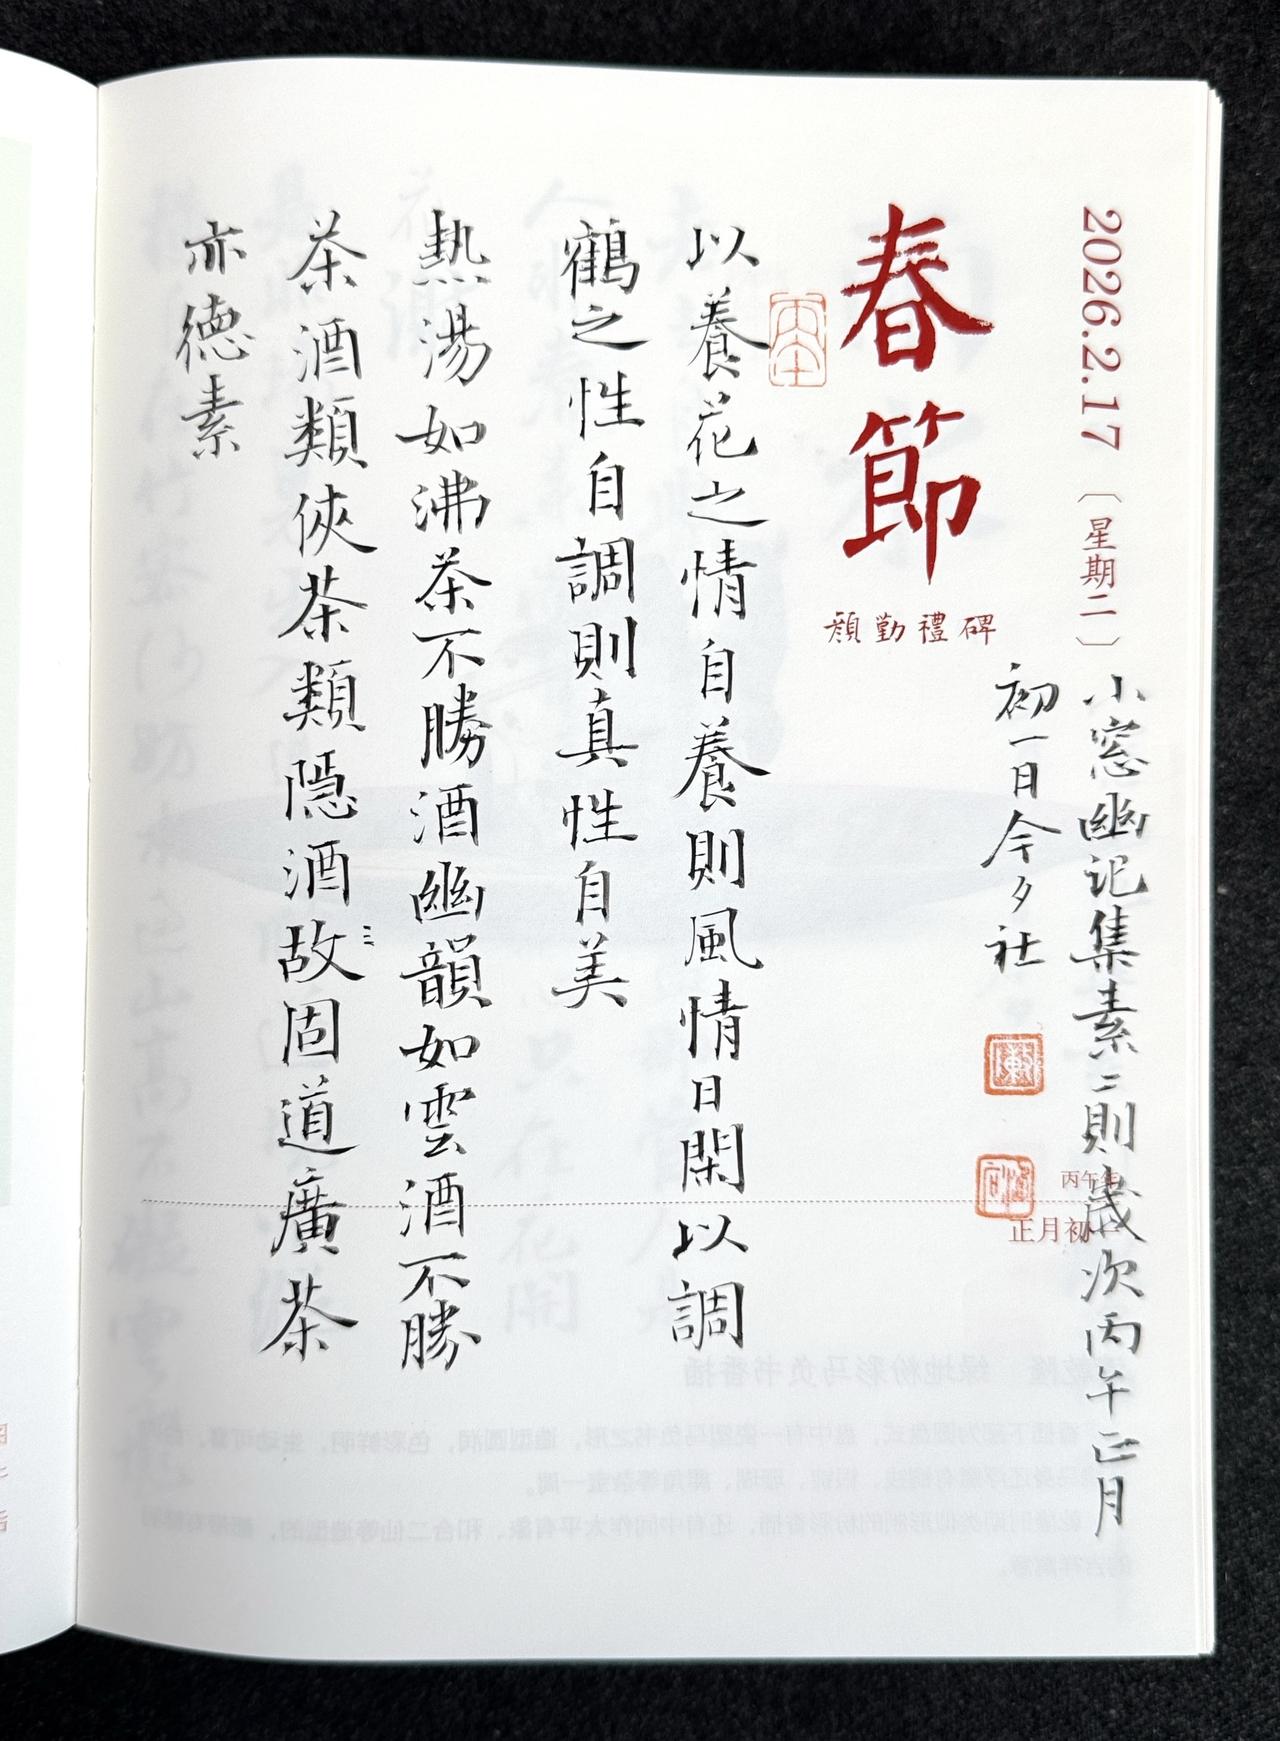 2026.2.17〔星期二〕
春節
顏勤禮碑
以養花之情自養則風情日閑以調
鶴之性自調則真性自美
熱湯如沸茶不勝酒幽韻如雲酒不勝
茶酒類俠茶類隱酒故固道廣茶
亦德素
小窓幽记集素二則歲次丙午正月
初一日今夕社
丙午年
正月初